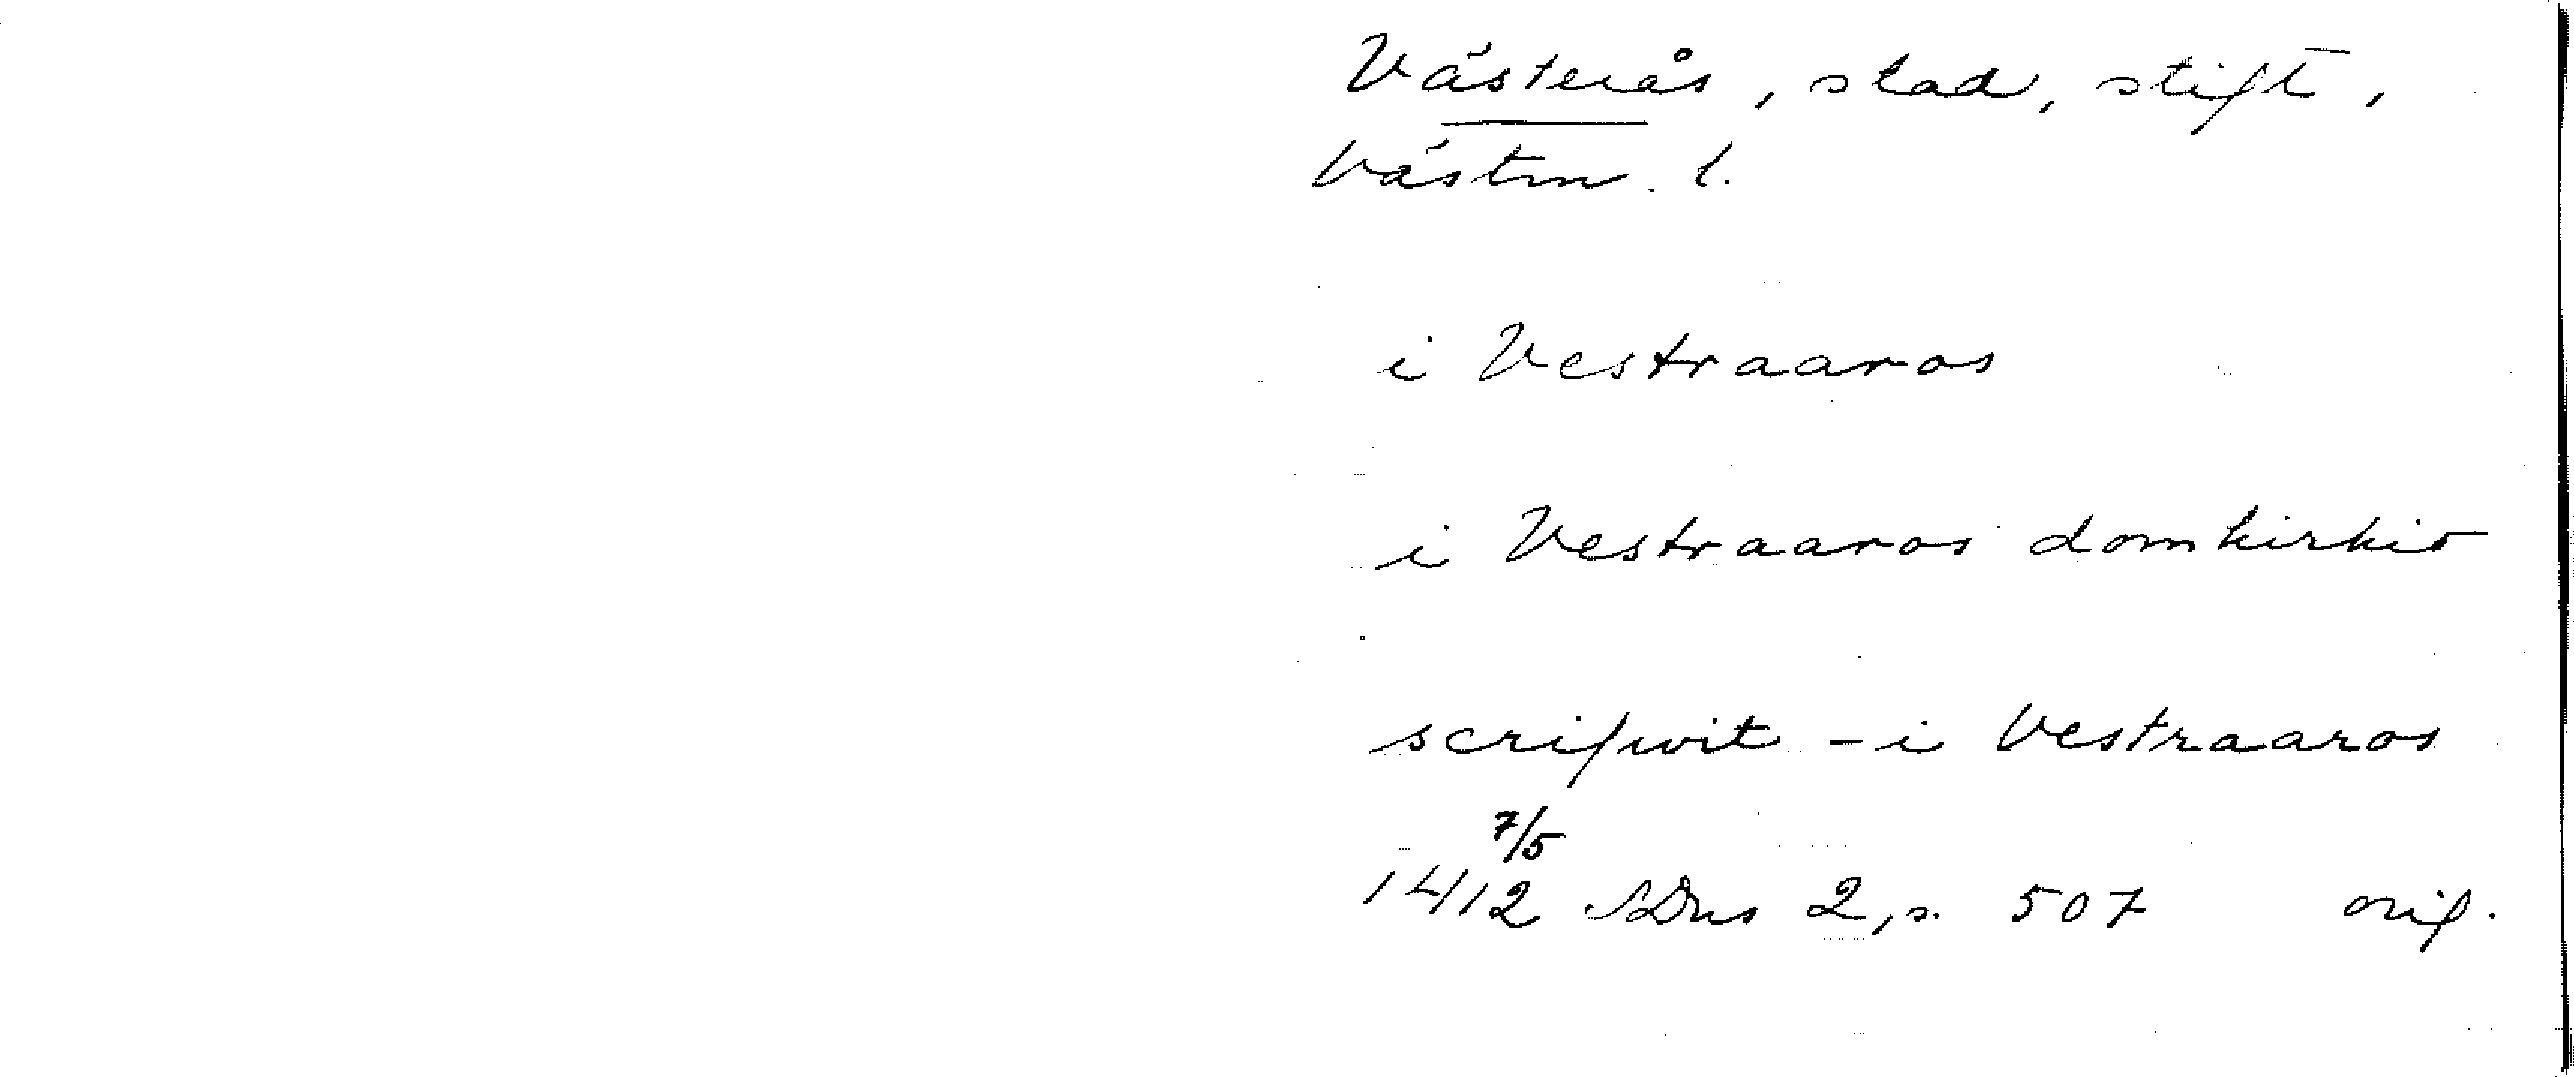 Västerås, stad, stift,
Västm. l.
i Vestraaros
i Vestraaros domkirkio
scrifwit - i Vestraaros
7/5
1412 SDns 2, s. 507 orig.